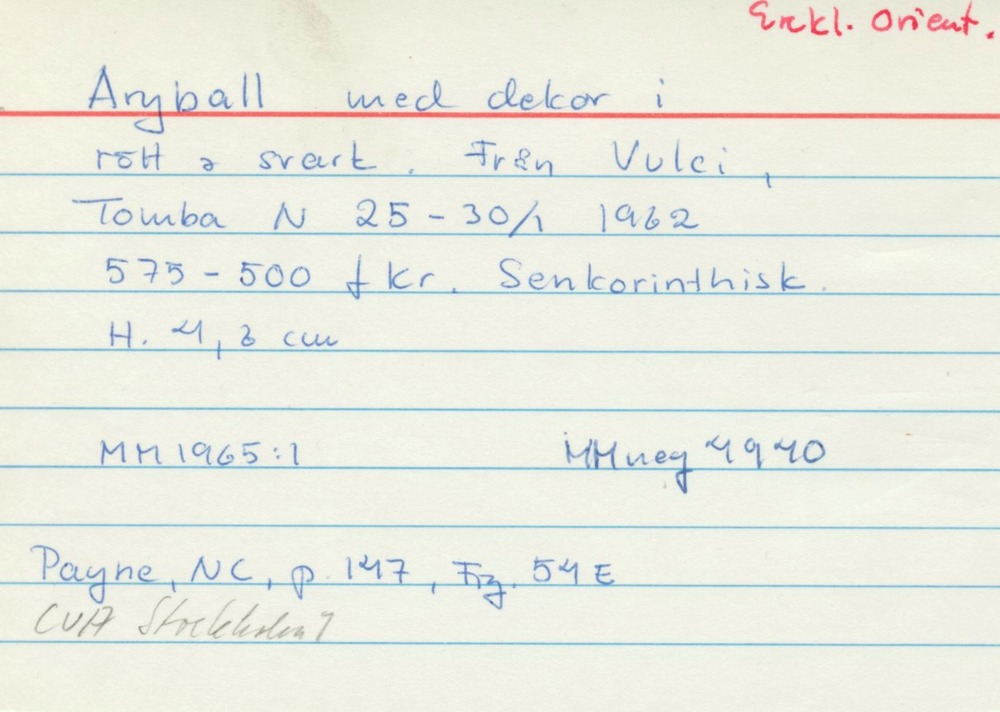 Grekl. Orient.
Aryball med dekor i
rött o svart. Från Vulci,
Tomba N 25-30/1 1962
575-500 f kr. Senkorinthisk.
H. 4,8 cm
MM 1965:1 MMneg 4940
Payne, NC, p. 147, Fig. 54 E
CVA Stockholm 1